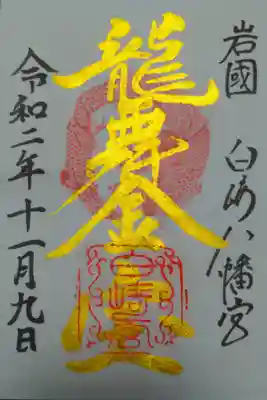 岩國 白崎八幡宮
龍金
令和二年十一月九日